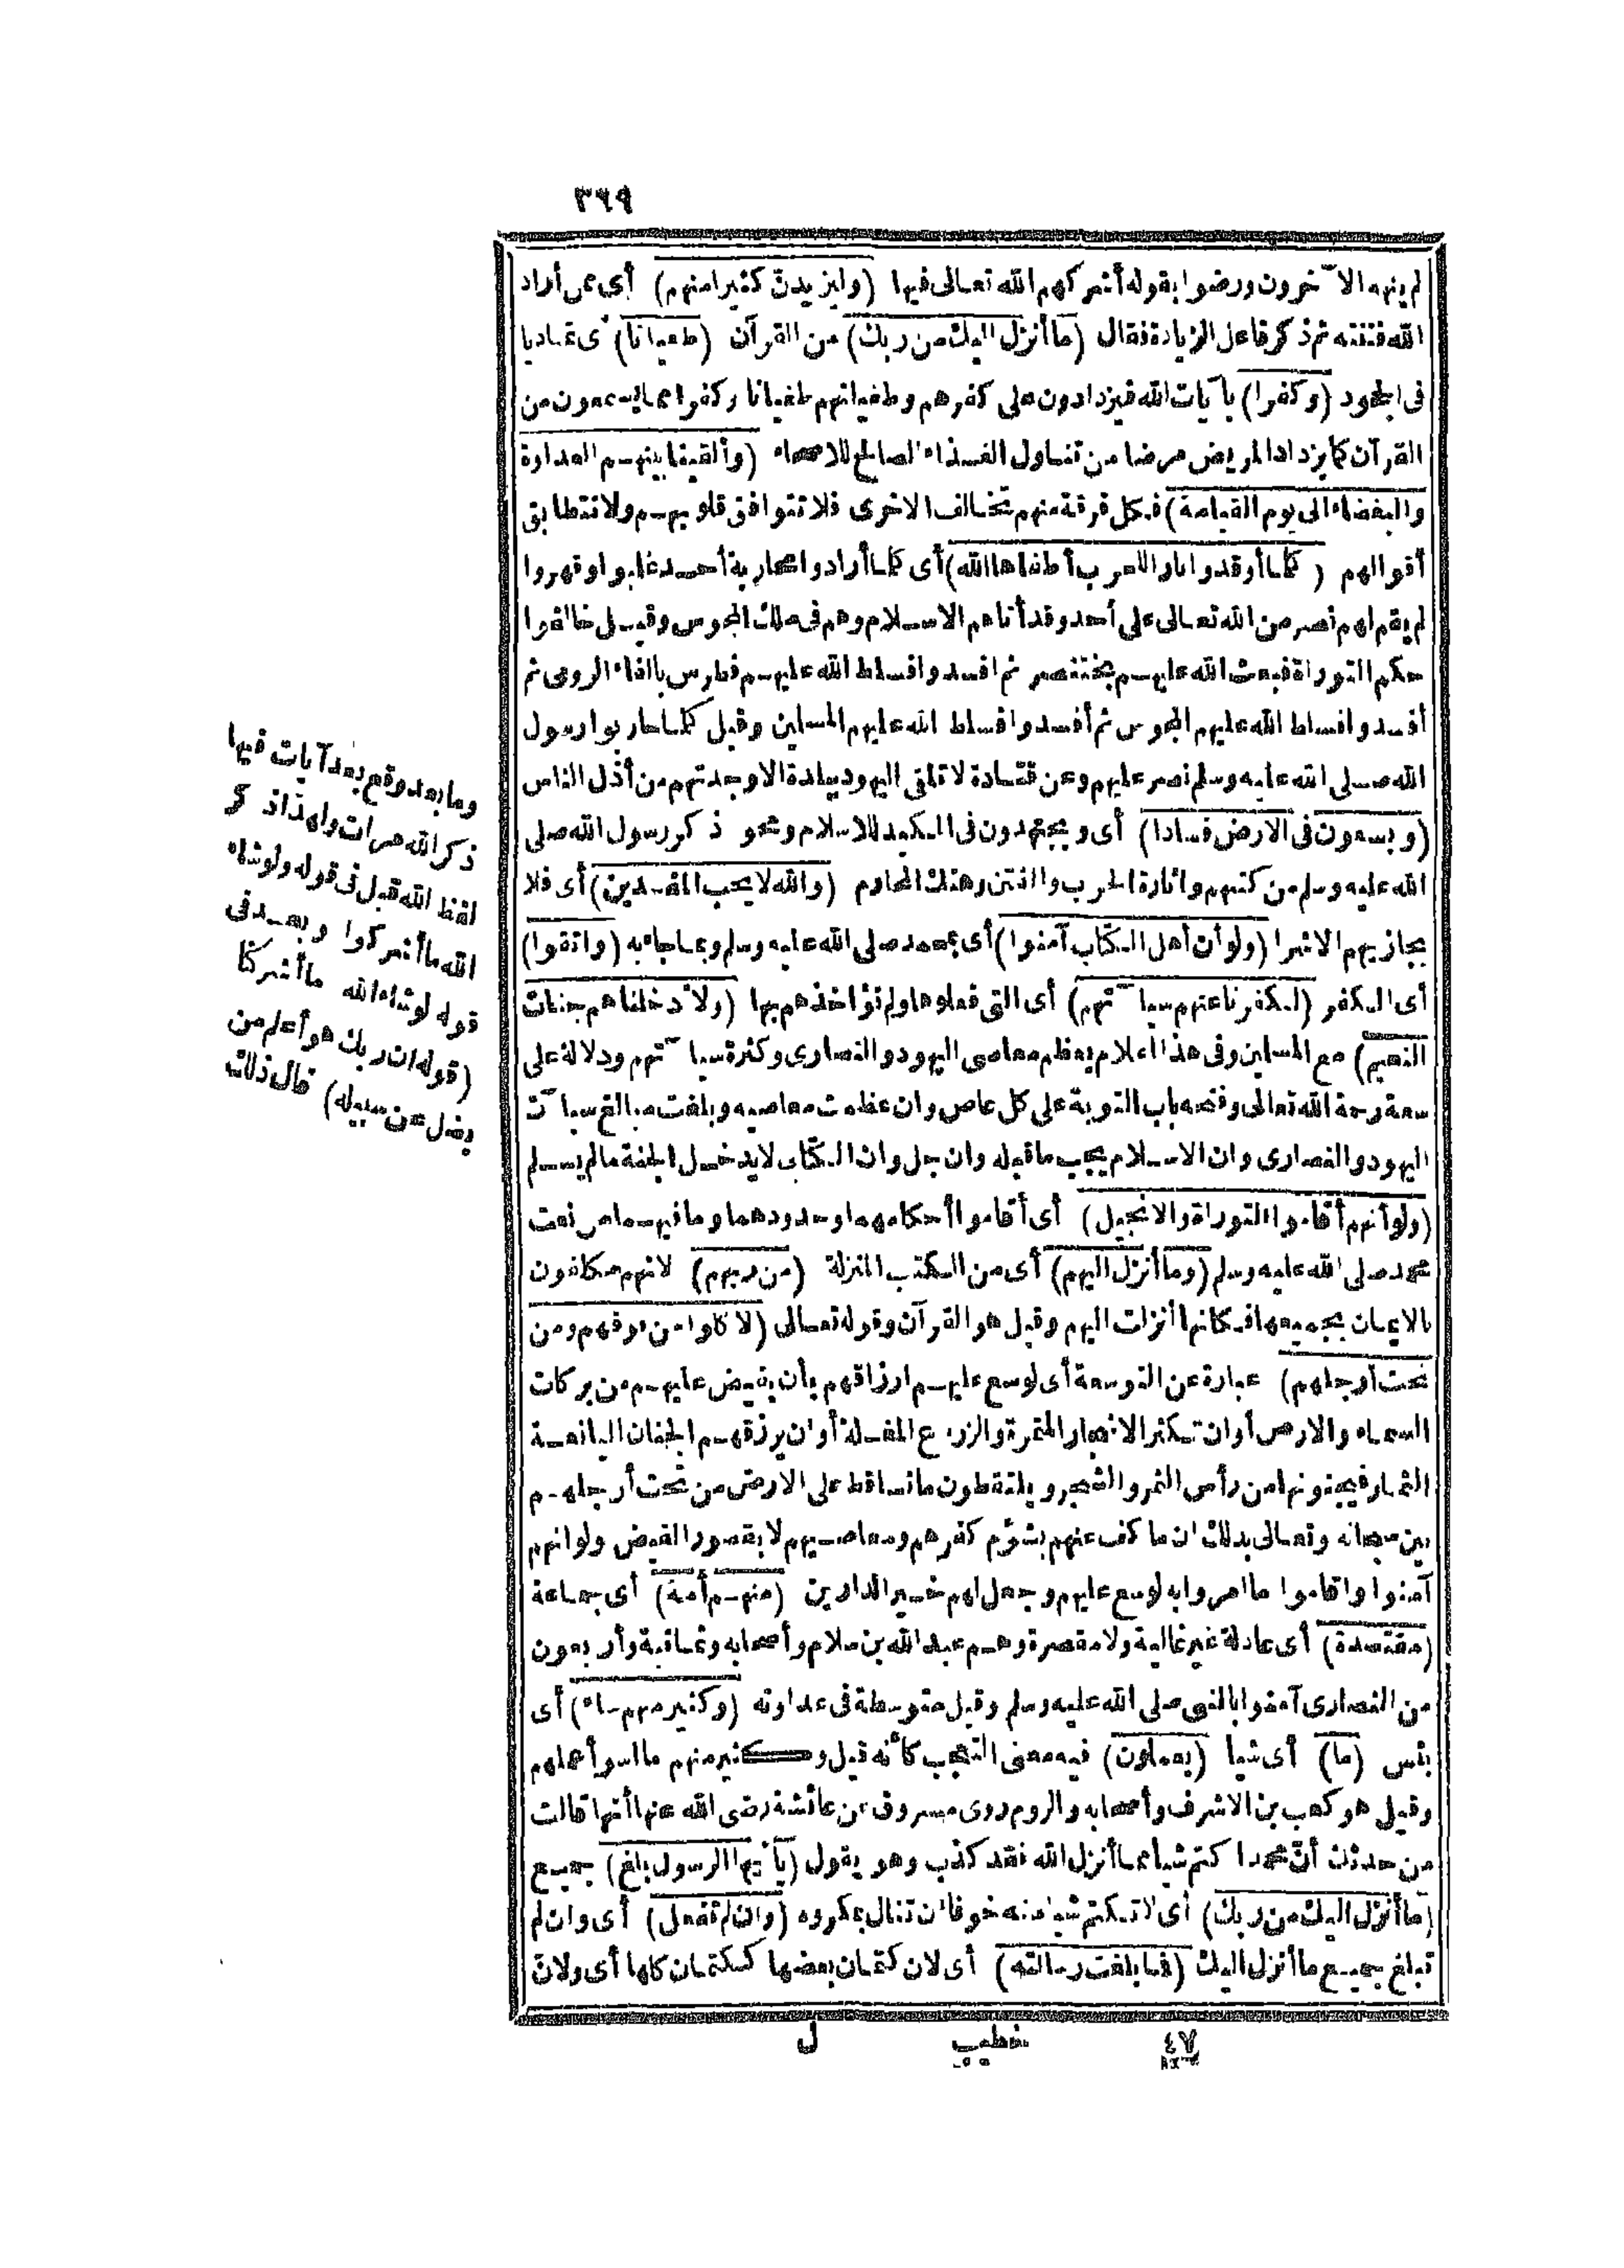 ٣٦٩
لم ينهه الآخرون ورضوا بقوله أشركهم الله تعالى فيها (وليزيدنّ كثيرا منهم) أي ممن أراد
الله فتنته ثم ذكر فاعل الزيادة فقال (ما أنزل اليك من ربك) من القرآن (طغيانا) أى تماديا
فى الجحود (وكفرا) بآيات الله فيزدادون على كفرهم وطغيانهم طغيانا وكفرا مما يسمعون من
القرآن كما يزداد المريض مرضا من تناول الغذاء الصالح للاصحاء (وألقينا بينهم العداوة
والبغضاء الى يوم القيامة) فكل فرقة منهم تخالف الاخرى فلا تتوافق قلوبهم ولا تتطابق
أقوالهم (كلما أوقدوا نارا للحرب أطفاها الله) أى كلما أرادوا محاربة أحد غلبوا وقهروا
لم يقم لهم نصر من الله تعالى على أحد وقد أتاهم الاسلام وهم فى ملك المجوس وقيل خالفوا
حكم التوراة فبعث الله عليهم بختنصر ثم افسدوا فسلط الله عليهم فطرس بالفاء الرومى ثم
أفسدوا فسلط الله عليهم المجوس ثم أفسدوا فسلط الله عليهم المسلمين وقيل كلما حاربوا رسول
الله صلى الله عليه وسلم نصر عليهم وعن قتادة لا تلقى اليهود ببلدة الا وجدتهم من أذل الناس
(ويسعون فى الارض فسادا) أى ويجتهدون فى الكيد للاسلام ومحو ذكر رسول الله صلى
الله عليه وسلم من كتبهم واثارة الحرب والفتن وهتك المحارم (والله لا يحب المفسدين) أى فلا
يجازيهم الا شرا (ولو أن أهل الكتاب آمنوا) أى بمحمد صلى الله عليه وسلم وبما جاء به (واتقوا)
أى الكفر (لكفرنا عنهم سيآتهم) أى التى فعلوها ولم نؤاخذهم بها (ولأدخلناهم جنات
النعيم) مع المسلمين وفى هذا اعلام بعظم معاصى اليهود والنصارى وكثرة سيآتهم ودلالة على
سعة رحمة الله تعالى وفتحه باب التوبة على كل عاص وان عظمت معاصيه وبلغت مبالغ سيآت
اليهود والنصارى وان الاسلام يجب ما قبله وان جل وان الكتابى لا يدخل الجنة ما لم يسلم
(ولو أنهم أقاموا التوراة والانجيل) أى أقاموا أحكامهما وحدودهما وما فيهما من نعت
محمد صلى الله عليه وسلم (وما أنزل اليهم) أى من الكتب المنزلة (من ربهم) لانهم مكلفون
بالايمان بجميعها فكانها أنزلت اليهم وقيل هو القرآن وقوله تعالى (لا كلوا من فوقهم ومن
تحت أرجلهم) عبارة عن التوسعة أى لوسع عليهم ارزاقهم بأن يفيض عليهم من بركات
السماء والارض أو ان تكثر الاشجار المثمرة والزروع المغلة أو أن يرزقهم الجنان اليانعة
الثمار فيجنونها من رأس الثمر والشجر ويلتقطون ما تساقط على الارض من تحت أرجلهم
بين سبحانه وتعالى بذلك ان ما كف عنهم بشؤم كفرهم ومعاصيهم لا بقصور الفيض ولو انهم
آمنوا واقاموا ما امروا به لوسع عليهم وجعل لهم خير الدارين (منهم أمة) أى جماعة
(مقتصدة) أى عادلة غير غالية ولا مقصرة وهم عبد الله بن سلام وأصحابه وثمانية وأربعون
من النصارى آمنوا بالنبى صلى الله عليه وسلم وقيل متوسطة فى عداوته (وكثير منهم ساء) أى
بئس (ما) أى شيأ (يعملون) فيه معنى التعجب كأنه قيل وكثير منهم ما اسوأ عملهم
وقيل هو كعب بن الاشرف وأصحابه والروم روى مسروق عن عائشة رضى الله عنها أنها قالت
من حدثك أنّ محمدا كتم شيأ مما أنزل الله فقد كذب وهو يقول (يأيها الرسول بلغ) جميع
(ما أنزل اليك من ربك) أى لا تكتم شيأ منه خوفا أن تنال بمكروه (وان لم تفعل) أى وان لم
تبلغ جميع ما أنزل اليك (فما بلغت رسالته) أى لان كتمان بعضها ككتمان كلها أى ولانّ
وما بعد وقع بعد آيات فيها
ذكر الله مرات ولهذا ذكر
لفظ الله قبل فى قوله ولو شاء
الله ما أشركوا وبعد فى
قوله لو شاء الله ما أشركنا
(قوله ان ربك هو أعلم من
يضل عن سبيله) قال ذلك
٤٧
خطيب
ل